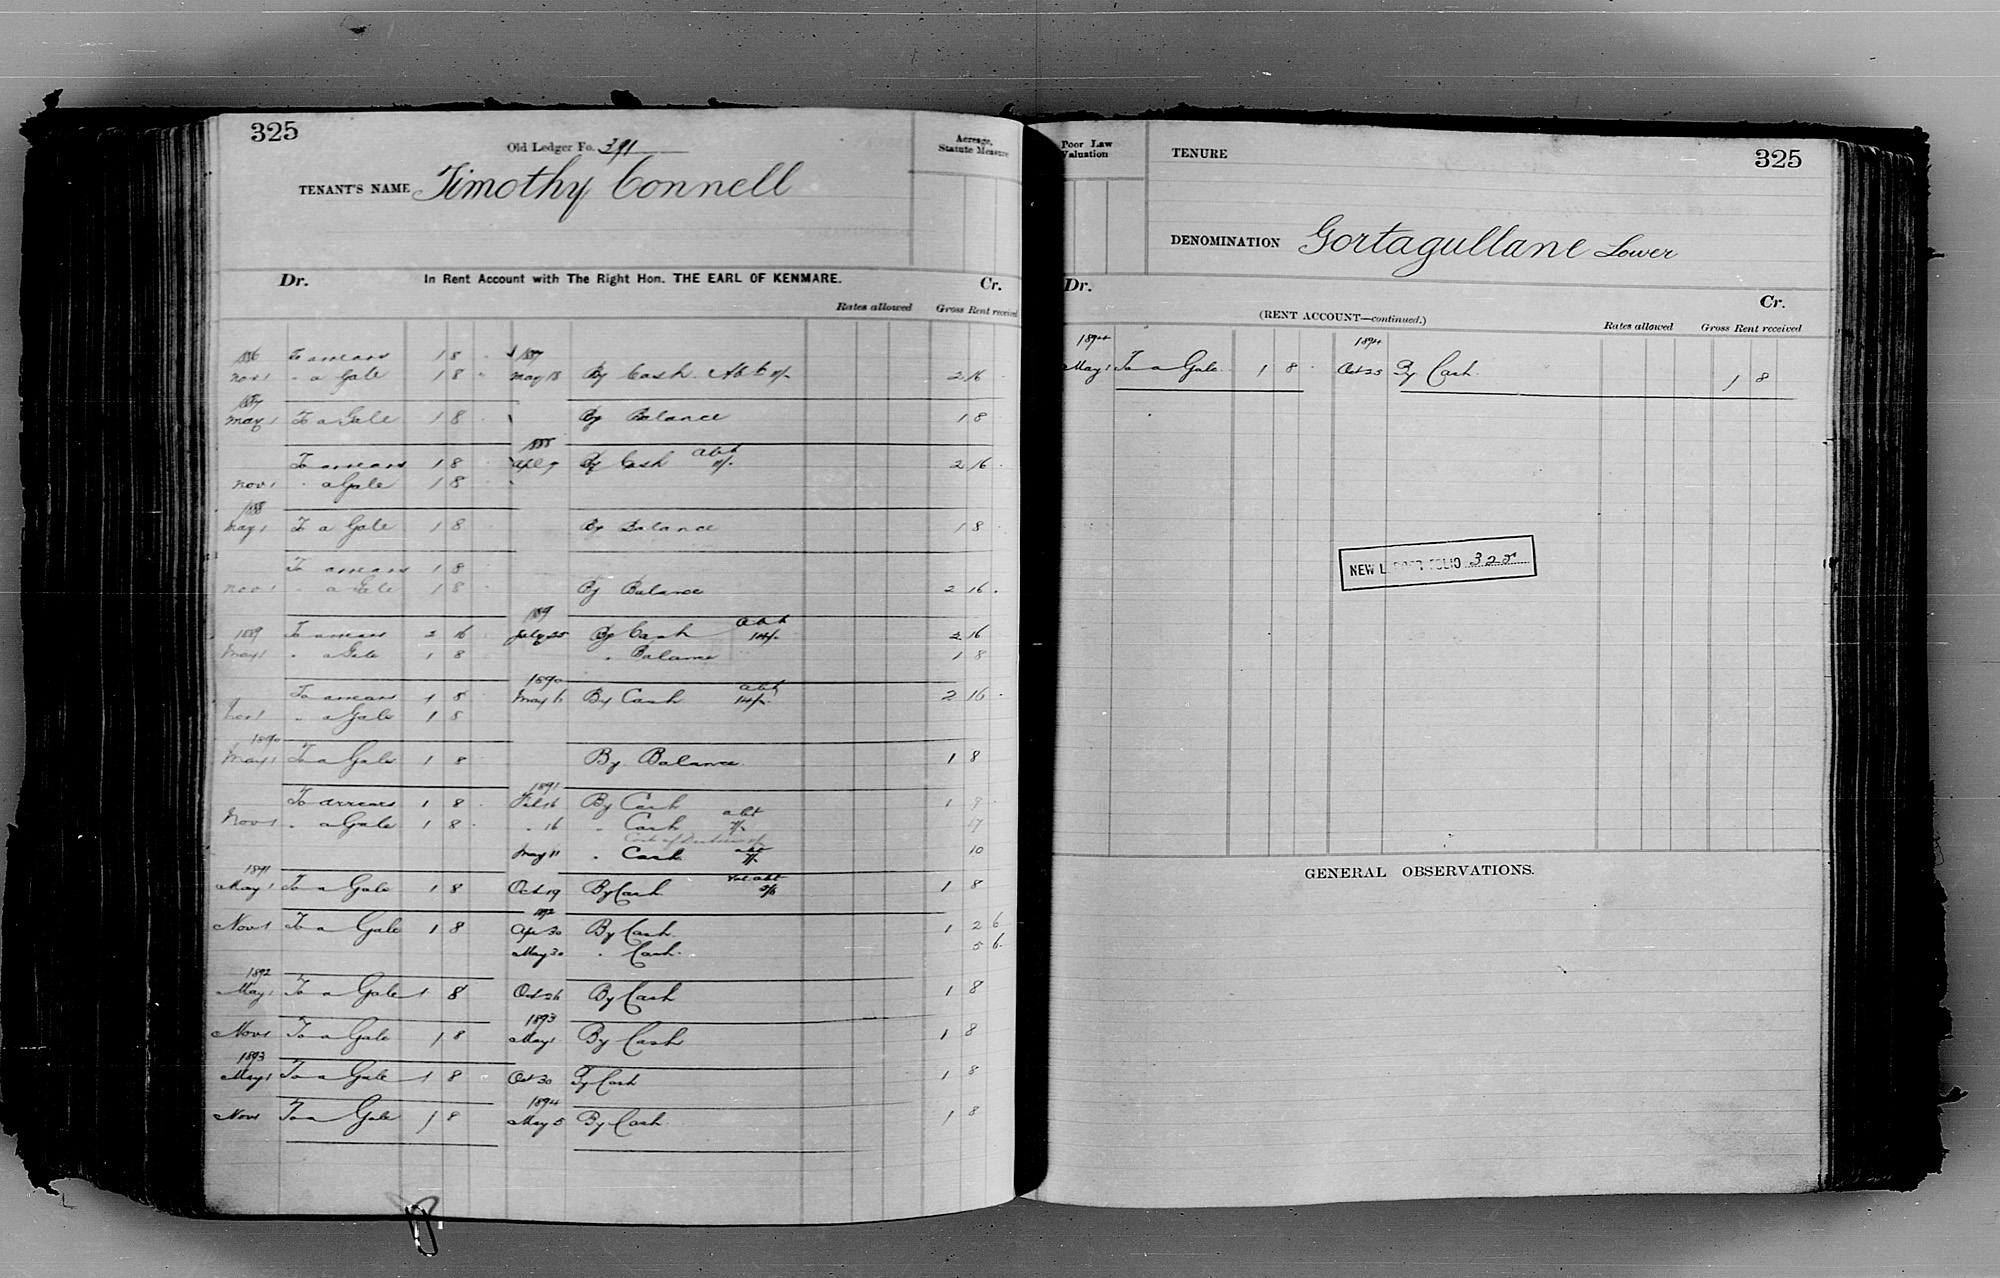 325
Old Ledger Fo. 391
Acreage, Statute Measure
TENANT'S NAME Timothy Connell
Dr. In Rent Account with The Right Hon. THE EARL OF KENMARE. Cr.
Rates allowed Gross Rent received
1886 To arrears 1 8 1887
Nov 1 " a Gale 1 8 May 18 By Cash Abt 2 16
1887
May 1 To a Gale 1 8 By Balance 1 8
1888 Abt
To arrears 1 8 Apl 9 By Cash 2 16
Nov 1 " a Gale 1 8
1888
May 1 To a Gale 1 8 By Balance 1 8
To arrears 1 8
Nov 1 " a Gale 1 8 By Balance 2 16
1889 Abt
1889 To arrears 2 16 July 25 By Cash 14/- 2 16
May 1 " a Gale 1 8 " Balance 1 8
1890 Abt
To arrears 1 8 May 16 By Cash 14/- 2 16
Nov 1 " a Gale 1 8
1890
May 1 To a Gale 1 8 By Balance 1 8
1891
To arrears 1 8 Feb 16 By Cash 1 9
Nov 1 " a Gale 1 8 " 16 " Cash abt 7/- 17
May 11 " Cash abt 7/- 10
1891
May 1 To a Gale 1 8 Oct 19 By Cash abt 1 8
1892
Nov 1 To a Gale 1 8 Apr 30 By Cash 1 2 6
May 30 " Cash 5 6
1892
May 1 To a Gale 1 8 Oct 26 By Cash 1 8
1893
Nov 1 To a Gale 1 8 May 1 By Cash 1 8
1893
May 1 To a Gale 1 8 Oct 30 By Cash 1 8
1894
Nov 1 To a Gale 1 8 May 5 By Cash 1 8
Poor Law Valuation
TENURE
325
DENOMINATION Gortagullane Lower
Dr. Cr.
(RENT ACCOUNT—continued.)
Rates allowed Gross Rent received
1894 1894
May 1 To a Gale 1 8 Oct 23 By Cash 1 8
NEW LEDGER FOLIO 325
GENERAL OBSERVATIONS.